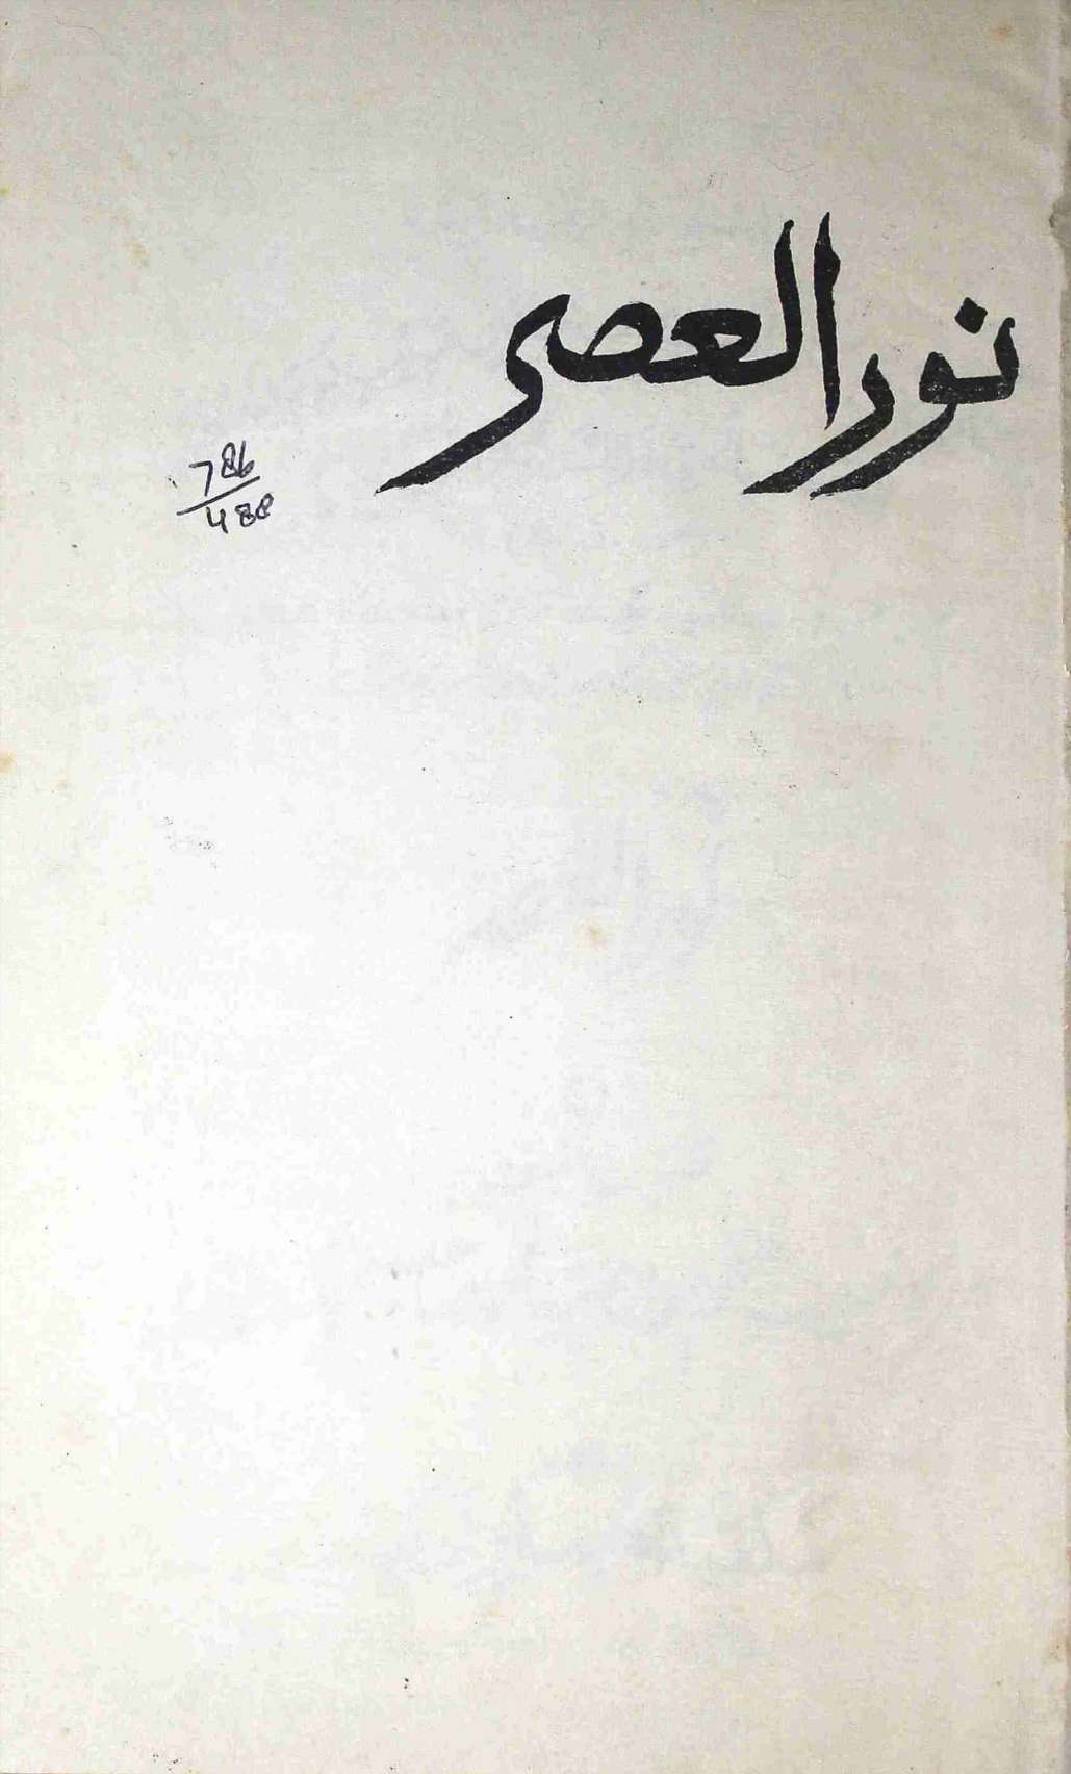 نور العصر
786
488